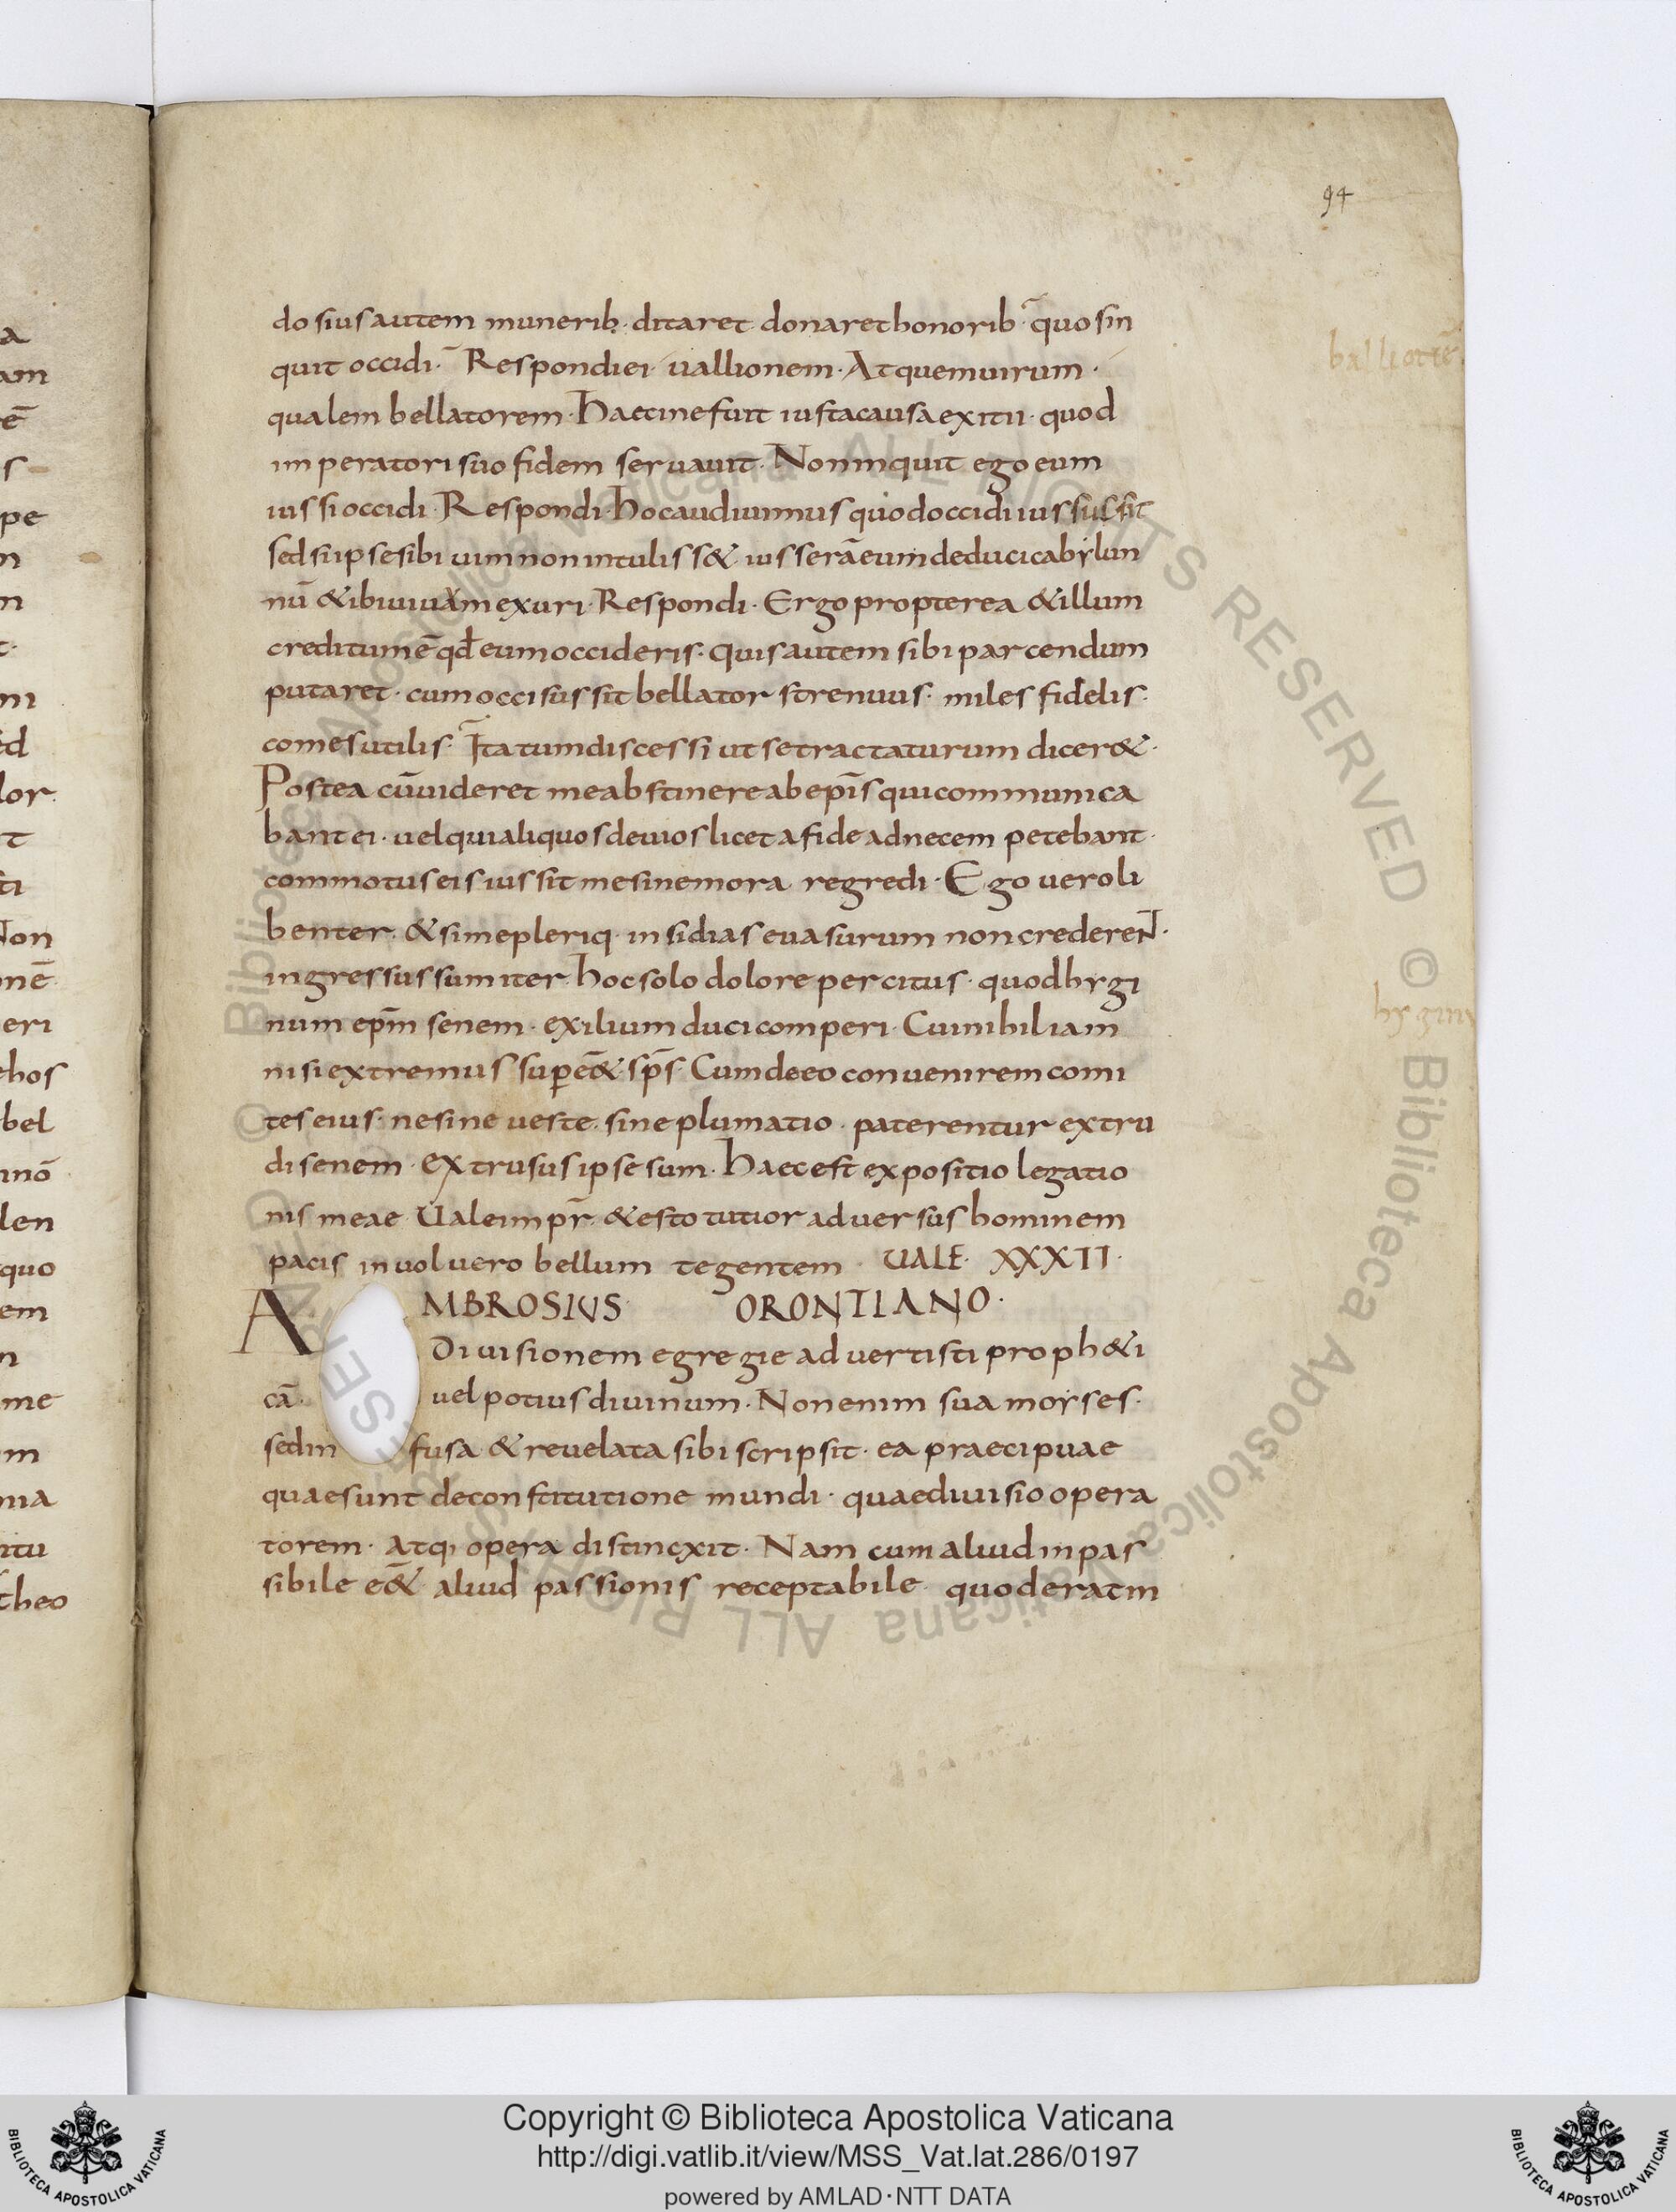 94
do sius autem munerib; ditaret donaret honorib; quos in
quit occidi. Respondi ei uallionem. At quem uirum.
qualem bellatorem. Haecine fuit iusta causa exitii. quod
imperatori suo fidem seruauit. Non inquit ego eum
iussi occidi. Respondi. hoc audiuimus quod occidi iussus sit
sed si ipse sibi uim non intuliss& iusserā eum deduci cabylun
nū & ibi uiuum exuri. Respondi. Ergo propterea & illum
creditum ē qđ eum occideris. quis autem sibi parcendum
putaret. cum occisus sit bellator strenuus. miles fidelis.
comes utilis. Ita tum discessi ut se tractaturum dicer&.
Postea cū uideret me abstinere ab epīs qui communica
bant ei. uel qui aliquos deuios licet a fide ad necem petebant.
commotus eis iussit me sine mora regredi. Ego uero li
benter. & si me pleriq. insidias euasurum non crederent.
ingressus sum iter. hoc solo dolore percitus. quod hygi
num ep̄m senem. exilium duci comperi. Cui nihil iam
nisi extremus superē& sp̄s. Cum de eo conuenirem comi
tes eius. ne sine ueste. sine plumatio. paterentur extru
di senem. extrusus ipse sum. Haec est expositio legatio
nis meae. Uale imp̄r. & esto tutior aduersus hominem
pacis inuoluero bellum tegentem. UALE. XXXII.
AMBROSIUS ORONTIANO.
Diuisionem egregie aduertisti proph&i
cā. uel potius diuinum. Non enim sua moyses.
sed infusa & reuelata sibi scripsit. ea praecipuae
quae sunt de constitutione mundi. quae diuisio opera
torem. Atq; opera distincxit. Nam cum aliud inpas
sibile e&̄ aliud passionis receptabile quod erat in
balliotē
hyginu
a
am
ē
s
pe
n
n
t.
m
ed
lor.
t
ti
Non
nē
eri
thos
bel
nnō
len
quo
em
n
me
m
nia
itu
theo
© Biblioteca Apostolica Vaticana ALL RIGHTS RESERVED © Biblioteca Apostolica Vaticana ALL RIGHTS RESERVED
BIBLIOTECA APOSTOLICA VATICANA
Copyright © Biblioteca Apostolica Vaticana
http://digi.vatlib.it/view/MSS_Vat.lat.286/0197
powered by AMLAD·NTT DATA
BIBLIOTECA APOSTOLICA VATICANA